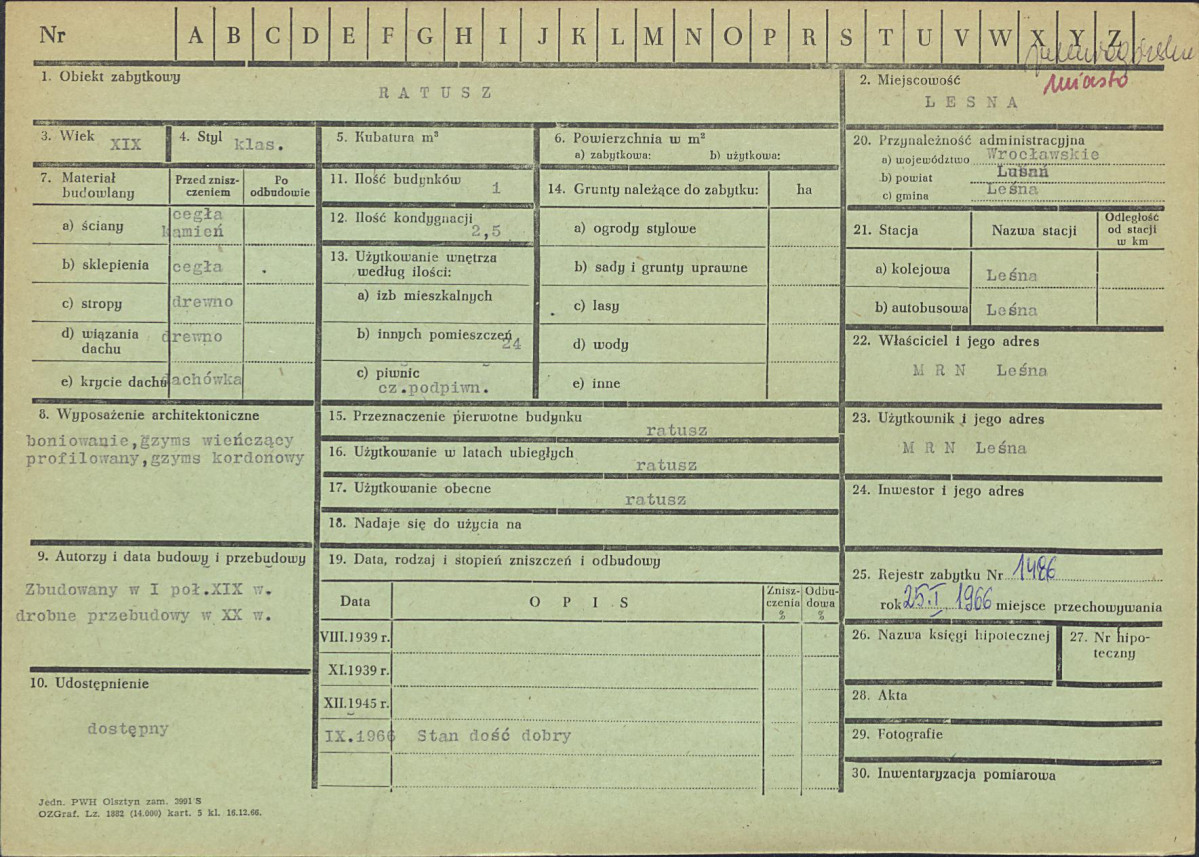 Nr A B C D E F G H I J K L M N O P R S T U V W X Y Z
miasto
1. Obiekt zabytkowy
RATUSZ
2. Miejscowość
LESNA
3. Wiek XIX
4. Styl klas.
5. Kubatura m³
6. Powierzchnia w m²
a) zabytkowa: b) użytkowa:
7. Materiał budowlany
Przed znisz-
czeniem
Po
odbudowie
a) ściany cegła
kamień
b) sklepienia cegła
c) stropy drewno
d) wiązania
dachu drewno
e) krycie dachu dachówka
8. Wyposażenie architektoniczne
boniowanie,gzyms wieńczący
profilowany,gzyms kordonowy
9. Autorzy i data budowy i przebudowy
Zbudowany w I poł.XIX w.
drobne przebudowy w XX w.
10. Udostępnienie
dostępny
11. Ilość budynków 1
12. Ilość kondygnacji
2,5
13. Użytkowanie wnętrza
według ilości:
a) izb mieszkalnych
b) innych pomieszczeń
24
c) piwnic
cz.podpiwn.
14. Grunty należące do zabytku: ha
a) ogrody stylowe
b) sady i grunty uprawne
c) lasy
d) wody
e) inne
15. Przeznaczenie pierwotne budynku
ratusz
16. Użytkowanie w latach ubiegłych
ratusz
17. Użytkowanie obecne
ratusz
18. Nadaje się do użycia na
19. Data, rodzaj i stopień zniszczeń i odbudowy
Data OPIS
Znisz-
czenia
%
Odbu-
dowa
%
VIII.1939 r.
XI.1939 r.
XII.1945 r.
IX.1966 Stan dość dobry
20. Przynależność administracyjna
a) województwo Wrocławskie
b) powiat Lubań
c) gmina Leśna
21. Stacja Nazwa stacji
Odległość
od stacji
w km
a) kolejowa Leśna
b) autobusowa Leśna
22. Właściciel i jego adres
M R N Leśna
23. Użytkownik i jego adres
M R N Leśna
24. Inwestor i jego adres
25. Rejestr zabytku Nr 1486
rok 25.I 1966 miejsce przechowywania
26. Nazwa księgi hipotecznej
27. Nr hipo-
teczny
28. Akta
29. Fotografie
30. Inwentaryzacja pomiarowa
Jedn. PWH Olsztyn zam. 3991 S
OZGraf. Lz. 1882 (14.000) kart. 5 kl. 16.12.66.